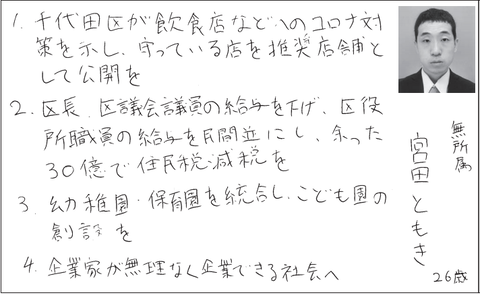 1. 千代田区が飲食店などへのコロナ対
策を示し、守っている店を推奨店舗と
して公開を
2. 区長、区議会議員の給与を下げ、区役
所職員の給与を民間並にし、余った
30億で住民税減税を
3. 幼稚園・保育園を統合し、こども園の
創設を
4. 企業家が無理なく企業できる社会へ
無所属
宮田ともき
26歳